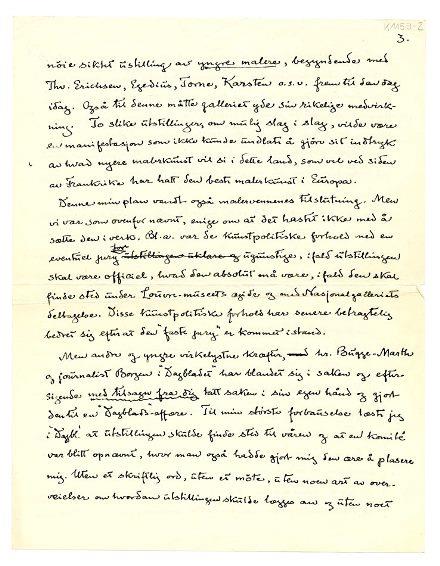 KM59-2
3.
nöie siktet utstilling av yngre malere, begyndende med
Thv. Erichsen, Egedius, Torne, Karsten o.s.v. frem til den dag
idag. Også til denne måtte galleriet yde sin rikelige medvirk-
ning. To slike utstillinger, om mulig slag i slag, vilde være
en manifestasjon som ikke kunde undlate å gjöre sit indtryk
av hvad nyere malerkunst vil si i dette land, som vel ved siden
av Frankrike har hatt den beste malerkunst i Europa.
Denne min plan vandt også malervennenes tilslutning. Men
vi var, som ovenfor nævnt, enige om at det hastet ikke med å
sætte den i verk. Bl.a. var de kunstpolitiske forhold med en
for
eventuel jury utstillingen uklare og ugunstige, ifald utstillingen
skal være officiel, hvad den absolut må være, ifald den skal
finde sted under Louvre-museets ægide og med Nasjonalgalleriets
deltagelse. Disse kunstpolitiske forhold har senere betragtelig
bedret sig efterat den "faste jury" er kommet istand.
Men andre og yngre virkelystne kræfter, hr. Bugge-Marthe
og journalist Borgen i "Dagbladet" har blandet sig i saken og efter-
sigende med tilsagn fra dig tatt saken i sin egen hånd og gjort
den til en "Dagblads-affære. Til min störste forbauselse læste jeg
i "Dagbl." at utstillingen skulde finde sted til våren og at en komité
var blitt opnævnt, hvor man også hadde gjort mig den ære å plasere
mig. Uten et skriftlig ord, uten et möte, uten noen art av over-
veielser om hvordan utstillingen skulde lægges an og uten noet